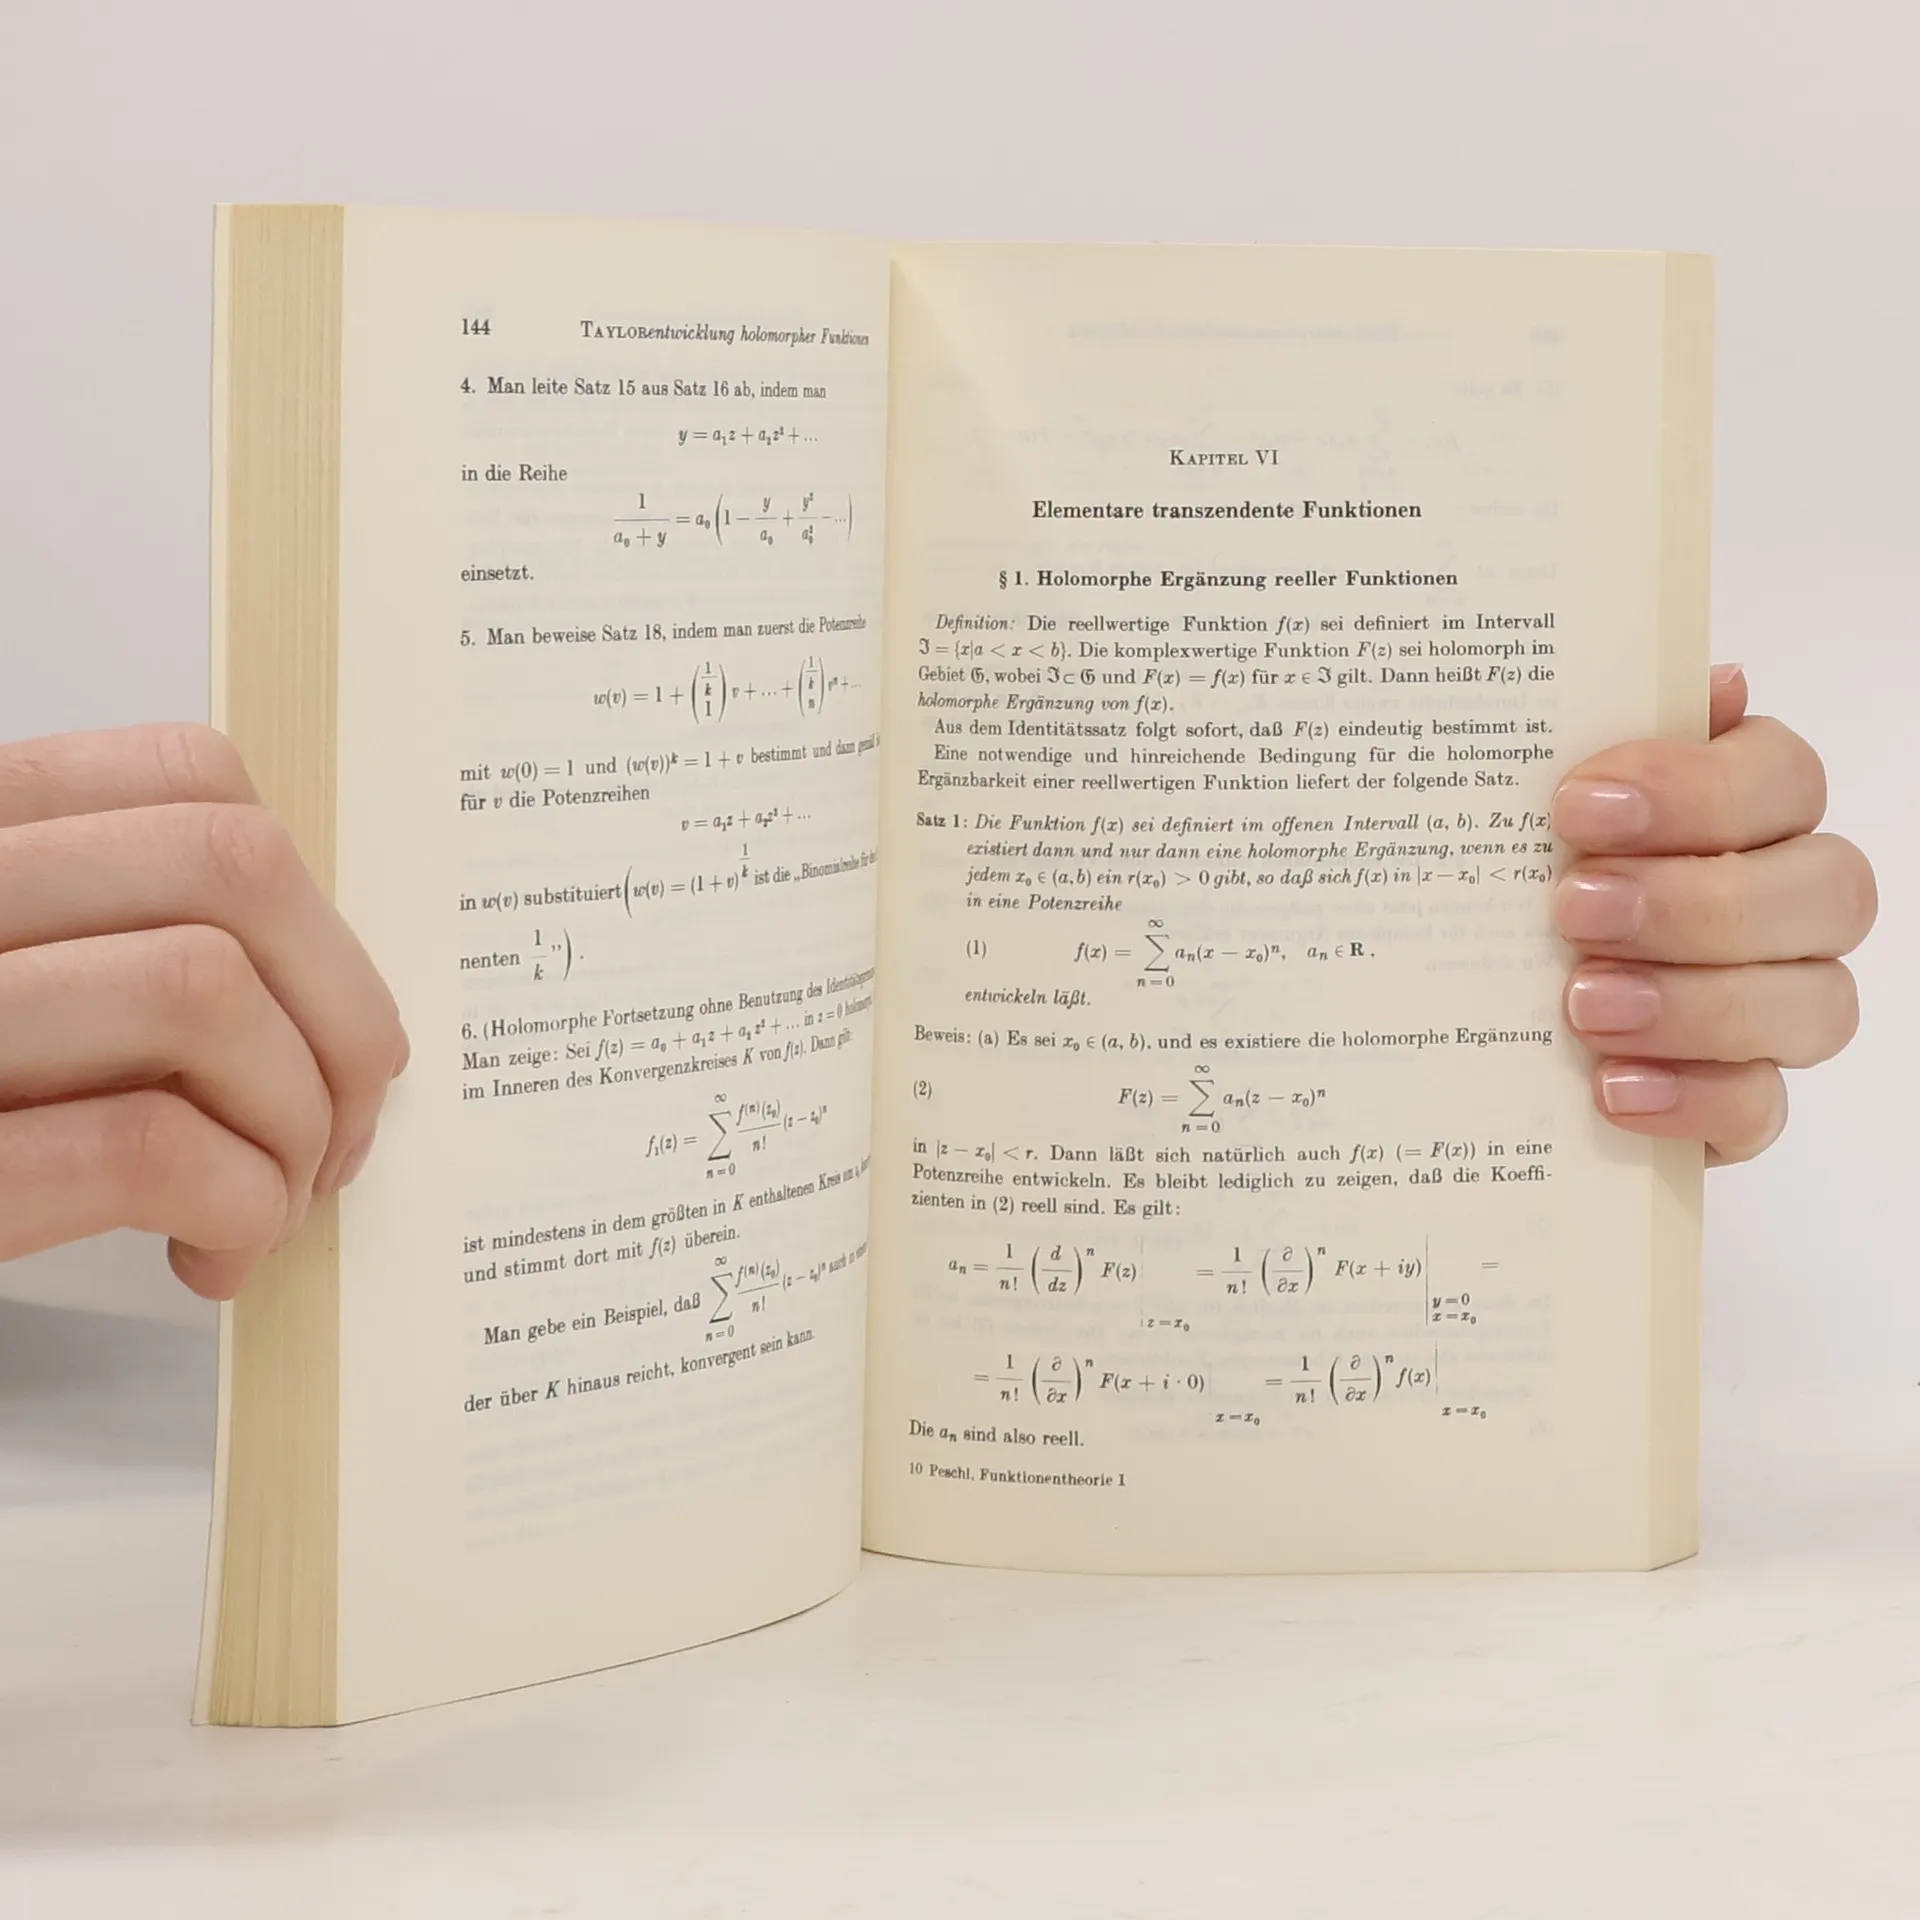 144 TAYLORentwicklung holomorpher Funktionen
4. Man leite Satz 15 aus Satz 16 ab, indem man
y = a₁z + a₂z² + ...
in die Reihe
1/(a₀ + y) = a₀ (1 − y/a₀ + y²/a₀² − ...)
einsetzt.
5. Man beweise Satz 18, indem man zuerst die Potenzreihe
w(v) = 1 + (1/k über 1) v + ... + (1/k über n) vⁿ + ...
mit w(0) = 1 und (w(v))ᵏ = 1 + v bestimmt und dann gemäß
für v die Potenzreihen
v = a₁z + a₂z² + ...
in w(v) substituiert (w(v) = (1 + v)^(1/k) ist die „Binomialreihe für
nenten 1/k”).
6. (Holomorphe Fortsetzung ohne Benutzung des
Man zeige: Sei f(z) = a₀ + a₁z + a₂z² + ... in z = 0
im Inneren des Konvergenzkreises K von f(z). Dann gilt:
f₁(z) = ∑_{n=0}^{∞} f⁽ⁿ⁾(z₀)/n! (z − z₀)ⁿ
ist mindestens in dem größten in K enthaltenen Kreis um z₀
und stimmt dort mit f(z) überein.
Man gebe ein Beispiel, daß ∑_{n=0}^{∞} f⁽ⁿ⁾(z₀)/n! (z − z₀)ⁿ auch in
der über K hinaus reicht, konvergent sein kann.
KAPITEL VI
Elementare transzendente Funktionen
§ 1. Holomorphe Ergänzung reeller Funktionen
Definition: Die reellwertige Funktion f(x) sei definiert im Intervall
ℑ = {x|a < x < b}. Die komplexwertige Funktion F(z) sei holomorph im
Gebiet 𝔊, wobei ℑ ⊂ 𝔊 und F(x) = f(x) für x ∈ ℑ gilt. Dann heißt F(z) die
holomorphe Ergänzung von f(x).
Aus dem Identitätssatz folgt sofort, daß F(z) eindeutig bestimmt ist.
Eine notwendige und hinreichende Bedingung für die holomorphe
Ergänzbarkeit einer reellwertigen Funktion liefert der folgende Satz.
Satz 1: Die Funktion f(x) sei definiert im offenen Intervall (a, b). Zu f(x)
existiert dann und nur dann eine holomorphe Ergänzung, wenn es zu
jedem x₀ ∈ (a,b) ein r(x₀) > 0 gibt, so daß sich f(x) in |x − x₀| < r(x₀)
in eine Potenzreihe
(1) f(x) = ∑_{n=0}^{∞} aₙ(x − x₀)ⁿ, aₙ ∈ R.
entwickeln läßt.
Beweis: (a) Es sei x₀ ∈ (a, b), und es existiere die holomorphe Ergänzung
(2) F(z) = ∑_{n=0}^{∞} aₙ(z − x₀)ⁿ
in |z − x₀| < r. Dann läßt sich natürlich auch f(x) (= F(x)) in eine
Potenzreihe entwickeln. Es bleibt lediglich zu zeigen, daß die Koeffi-
zienten in (2) reell sind. Es gilt:
aₙ = 1/n! (d/dz)ⁿ F(z)|_{z=x₀} = 1/n! (∂/∂x)ⁿ F(x + iy)|_{y=0, x=x₀} =
= 1/n! (∂/∂x)ⁿ F(x + i · 0)|_{x=x₀} = 1/n! (∂/∂x)ⁿ f(x)|_{x=x₀}
Die aₙ sind also reell.
10 Peschl, Funktionentheorie I